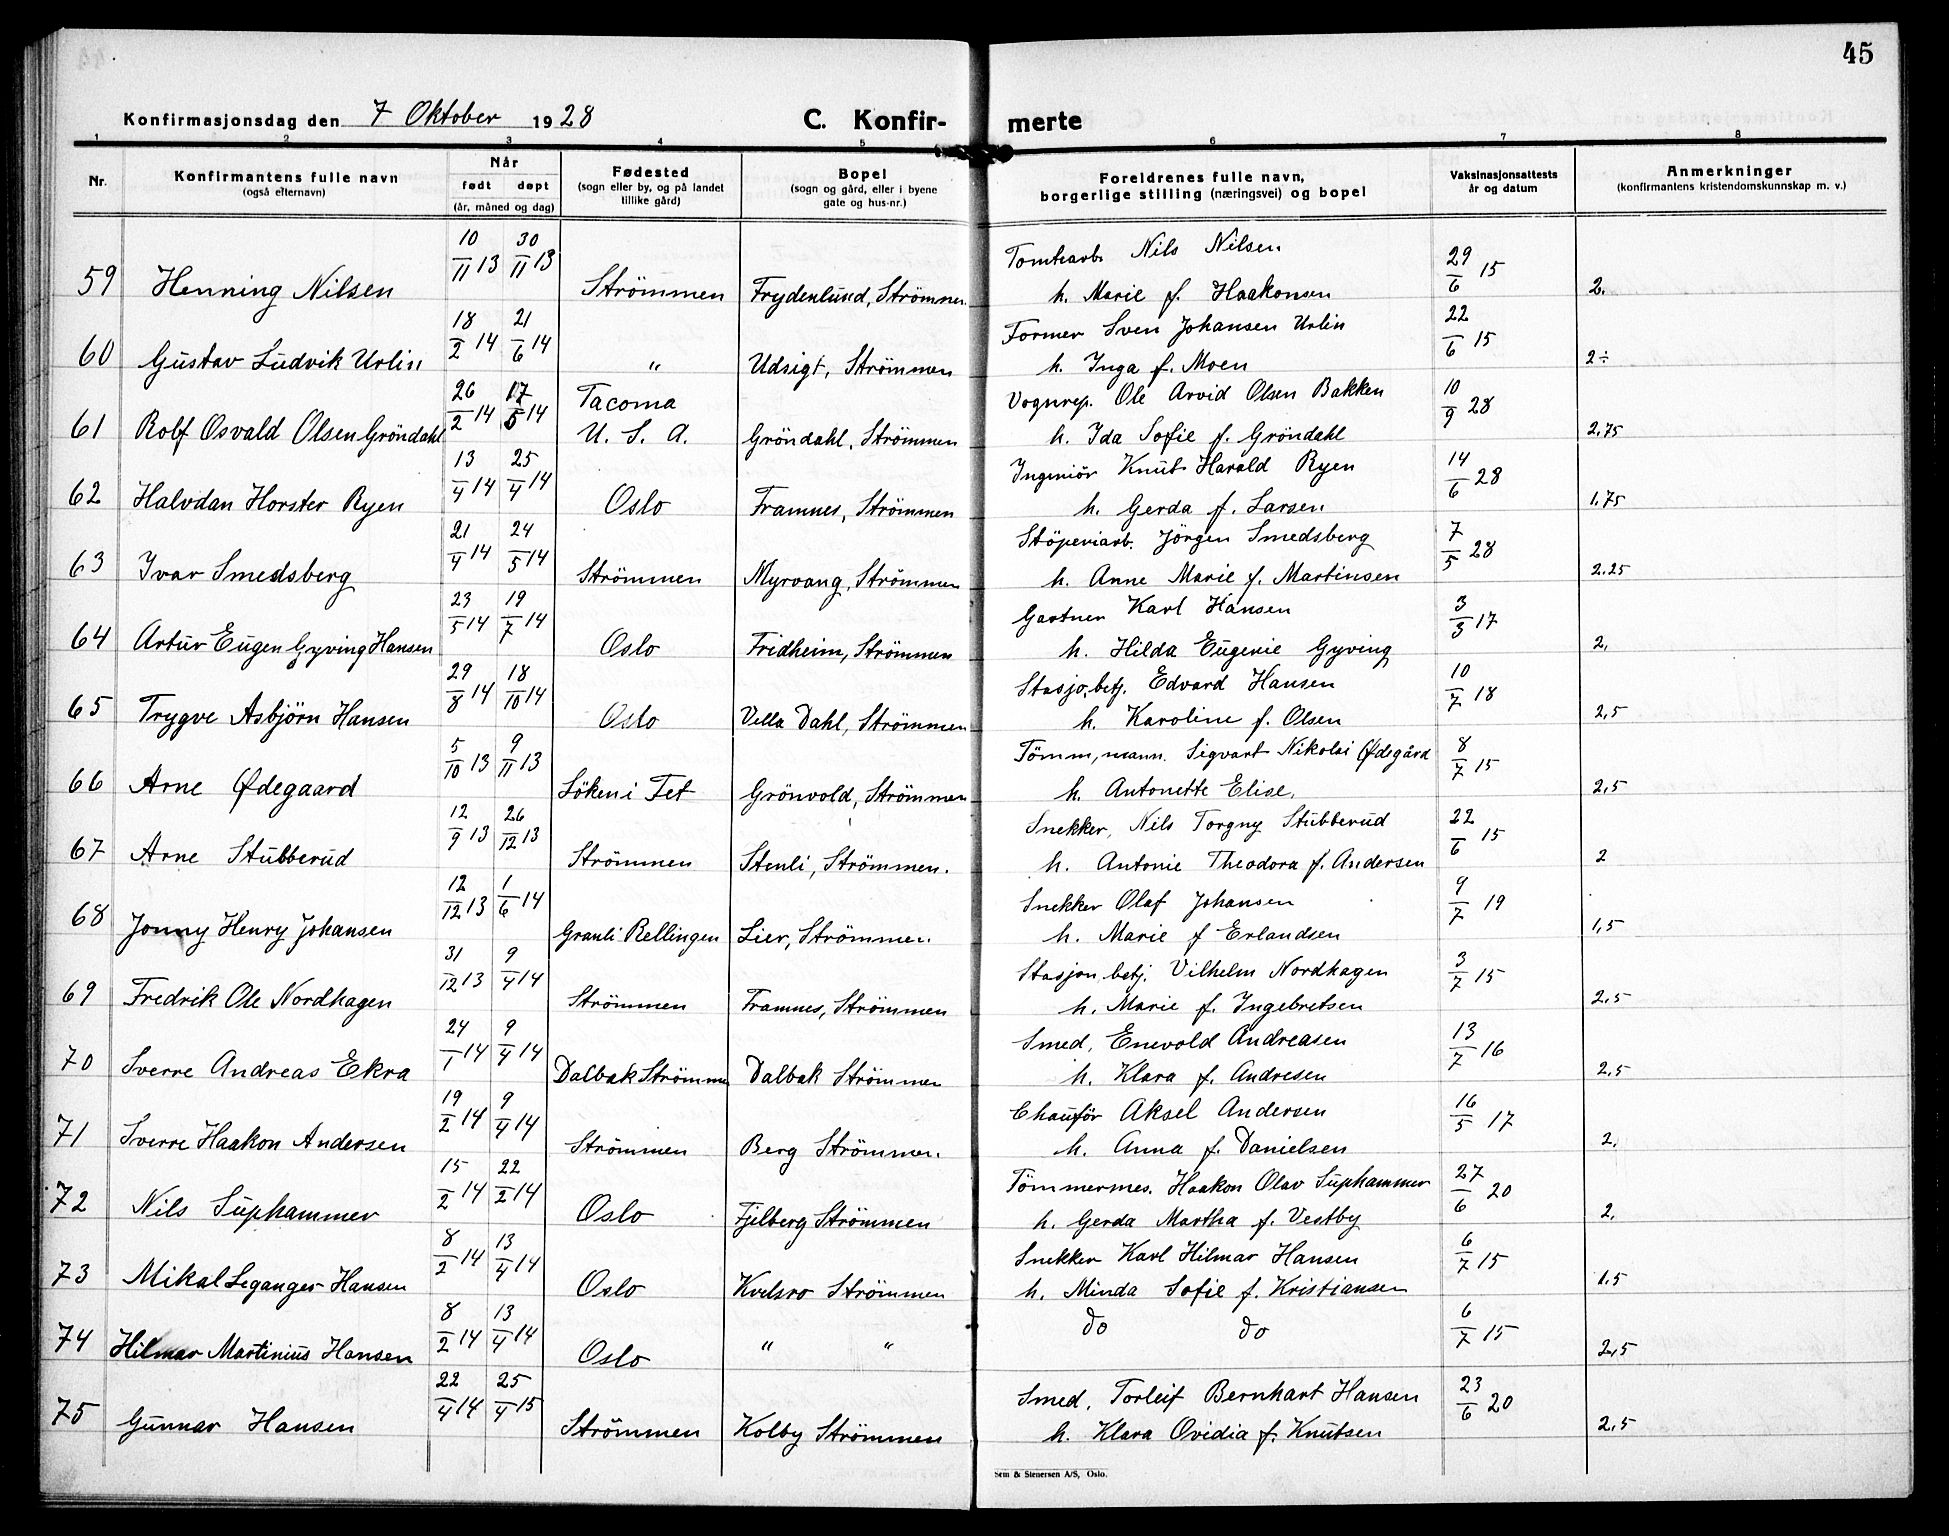 45
Konfirmasjonsdag den 7 Oktober 1928 C. Konfir- merte
1 2 3 4 5 6 7 8
Nr. Konfirmantens fulle navn (også efternavn) Når født døpt (år, måned og dag) Fødested (sogn eller by, og på landet tillike gård) Bopel (sogn og gård, eller i byene gate og hus-nr.) Foreldrenes fulle navn, borgerlige stilling (næringsvei) og bopel Vaksinasjonsattests år og datum Anmerkninger (konfirmantens kristendomskunnskap m. v.)
59 Henning Nilsen 10/11 13 30/11 13 Strömmen Frydenlund, Strömmen Tomtearb. Nils Nilsen 29/6 15
h. Marie f. Haakonsen 2.
60 Gustav Ludvik Urlin 18/2 14 21/6 14 " Udsigt, Strömmen Former Sven Johansen Urlin 22/6 15
h. Inga f. Moen 2÷
61 Rolf Osvald Olsen Gröndahl 26/2 14 17/5 14 Tacoma U. S. A. Gröndahl, Strömmen Vognrep. Ole Arvid Olsen Bakken 10/9 28
h. Ida Sofie f. Gröndahl 2,75
62 Halvdan Horster Ryen 13/4 14 25/4 14 Oslo Framnes, Strömmen Ingeniör Knut Harald Ryen 14/6 28
h. Gerda f. Larsen 1,75
63 Ivar Smedsberg 21/4 14 24/5 14 Strömmen Myrvang, Strömmen Stöperiarb. Jörgen Smedsberg 7/5 28
h. Anne Marie f. Martinsen 2.25
64 Artur Eugen Gyving Hansen 23/5 14 19/7 14 Oslo Fridheim, Strömmen Gartner Karl Hansen 3/3 17
h. Hilda Eugenie Gyving 2,
65 Trygve Asbjörn Hansen 29/8 14 18/10 14 Oslo Villa Dahl, Strömmen Stasjo.betj. Edvard Hansen 10/7 18
h. Karoline f. Olsen 2,5
66 Arne Ødegaard 5/10 13 9/11 13 Löken i Fet Grönvold, Strömmen Tömm,mann. Sigvart Nikolai Ødegård 8/7 15
h. Antonette Elise. 2,5
67 Arne Stubberud 12/9 13 26/12 13 Strömmen Stenli, Strömmen. Snekker, Nils Torgny Stubberud 22/6 15
h. Antonie Theodora f. Andersen 2
68 Jonny Henry Johansen 12/12 13 1/6 14 Granli Rellingen Lier, Strömmen. Snekker Olaf Johansen 9/7 19
h. Marie f Erlandsen 1,5
69 Fredrik Ole Nordhagen 31/12 13 9/4 14 Strömmen Framnes, Strömmen Stasjon.betj. Vilhelm Nordhagen 3/7 15
h. Marie f. Ingebretsen 2,5
70 Sverre Andreas Ekra 24/1 14 9/4 14 Dalbak Strömmen Dalbak Strömmen Smed, Enevold Andreasen 13/7 16
h. Klara f. Andresen 2,5
71 Sverre Haakon Andersen 19/2 14 9/4 14 Strömmen Berg Strömmen. Chauför Aksel Andersen 16/5 17
h. Anna f. Danielsen 2.
72 Nils Suphammer 15/2 14 22/2 14 Oslo Fjelberg Strömmen Tömmermes. Haakon Olav Suphammer 27/6 20
h. Gerda Martha f. Vestby 2.
73 Mikal Leganger Hansen 8/2 14 13/4 14 Oslo Kvelsro Strömmen Snekker Karl Hilmar Hansen 6/7 15
h. Minda Sofie f. Kristiansen 1.5
74 Hilmar Martinius Hansen 8/2 14 13/4 14 Oslo " " do do 6/7 15 2,5
75 Gunnar Hansen 22/4 14 25/4 15 Strömmen Kolby Strömmen Smed, Torleif Bernhart Hansen 23/6 20
h. Klara Ovidia f. Knutsen 2,5
Sem & Stenersen A/S, Oslo.